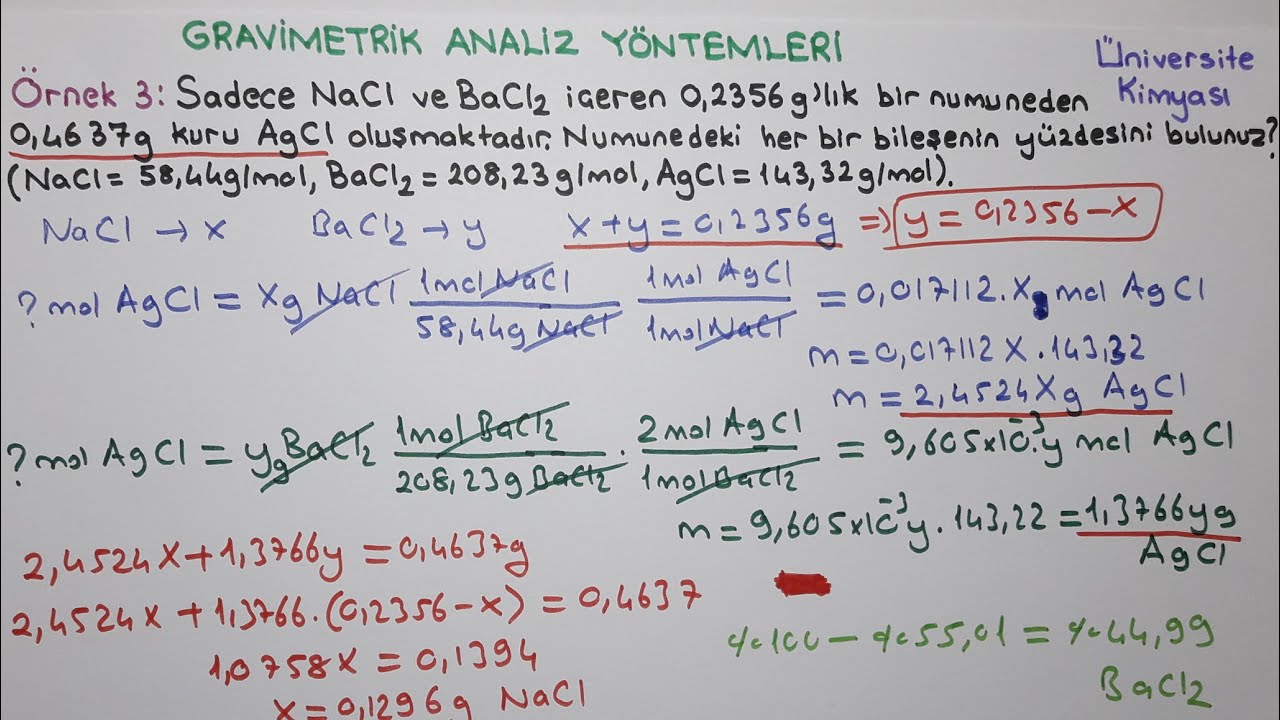 GRAVİMETRİK ANALİZ YÖNTEMLERİ
Üniversite Kimyası
Örnek 3: Sadece NaCl ve BaCl₂ içeren 0,2356 g'lık bir numuneden
0,4637g kuru AgCl oluşmaktadır. Numunedeki her bir bileşenin yüzdesini bulunuz?
(NaCl = 58,44g/mol, BaCl₂ = 208,23 g/mol, AgCl = 143,32 g/mol).
NaCl → x BaCl₂ → y x + y = 0,2356g ⇒ y = 0,2356 - x
? mol AgCl = xg NaCl 1mol NaCl / 58,44g NaCl · 1mol AgCl / 1mol NaCl = 0,017112.x mol AgCl
m = 0,017112 x . 143,32
m = 2,4524xg AgCl
? mol AgCl = yg BaCl₂ 1mol BaCl₂ / 208,23g BaCl₂ · 2 mol AgCl / 1mol BaCl₂ = 9,605x10⁻³.y mol AgCl
m = 9,605x10⁻³y . 143,22 = 1,3766yg AgCl
2,4524x + 1,3766y = 0,4637g
2,4524x + 1,3766.(0,2356 - x) = 0,4637
1,0758x = 0,1394
x = 0,1296g NaCl
%100 - %55,01 = %44,99
BaCl₂